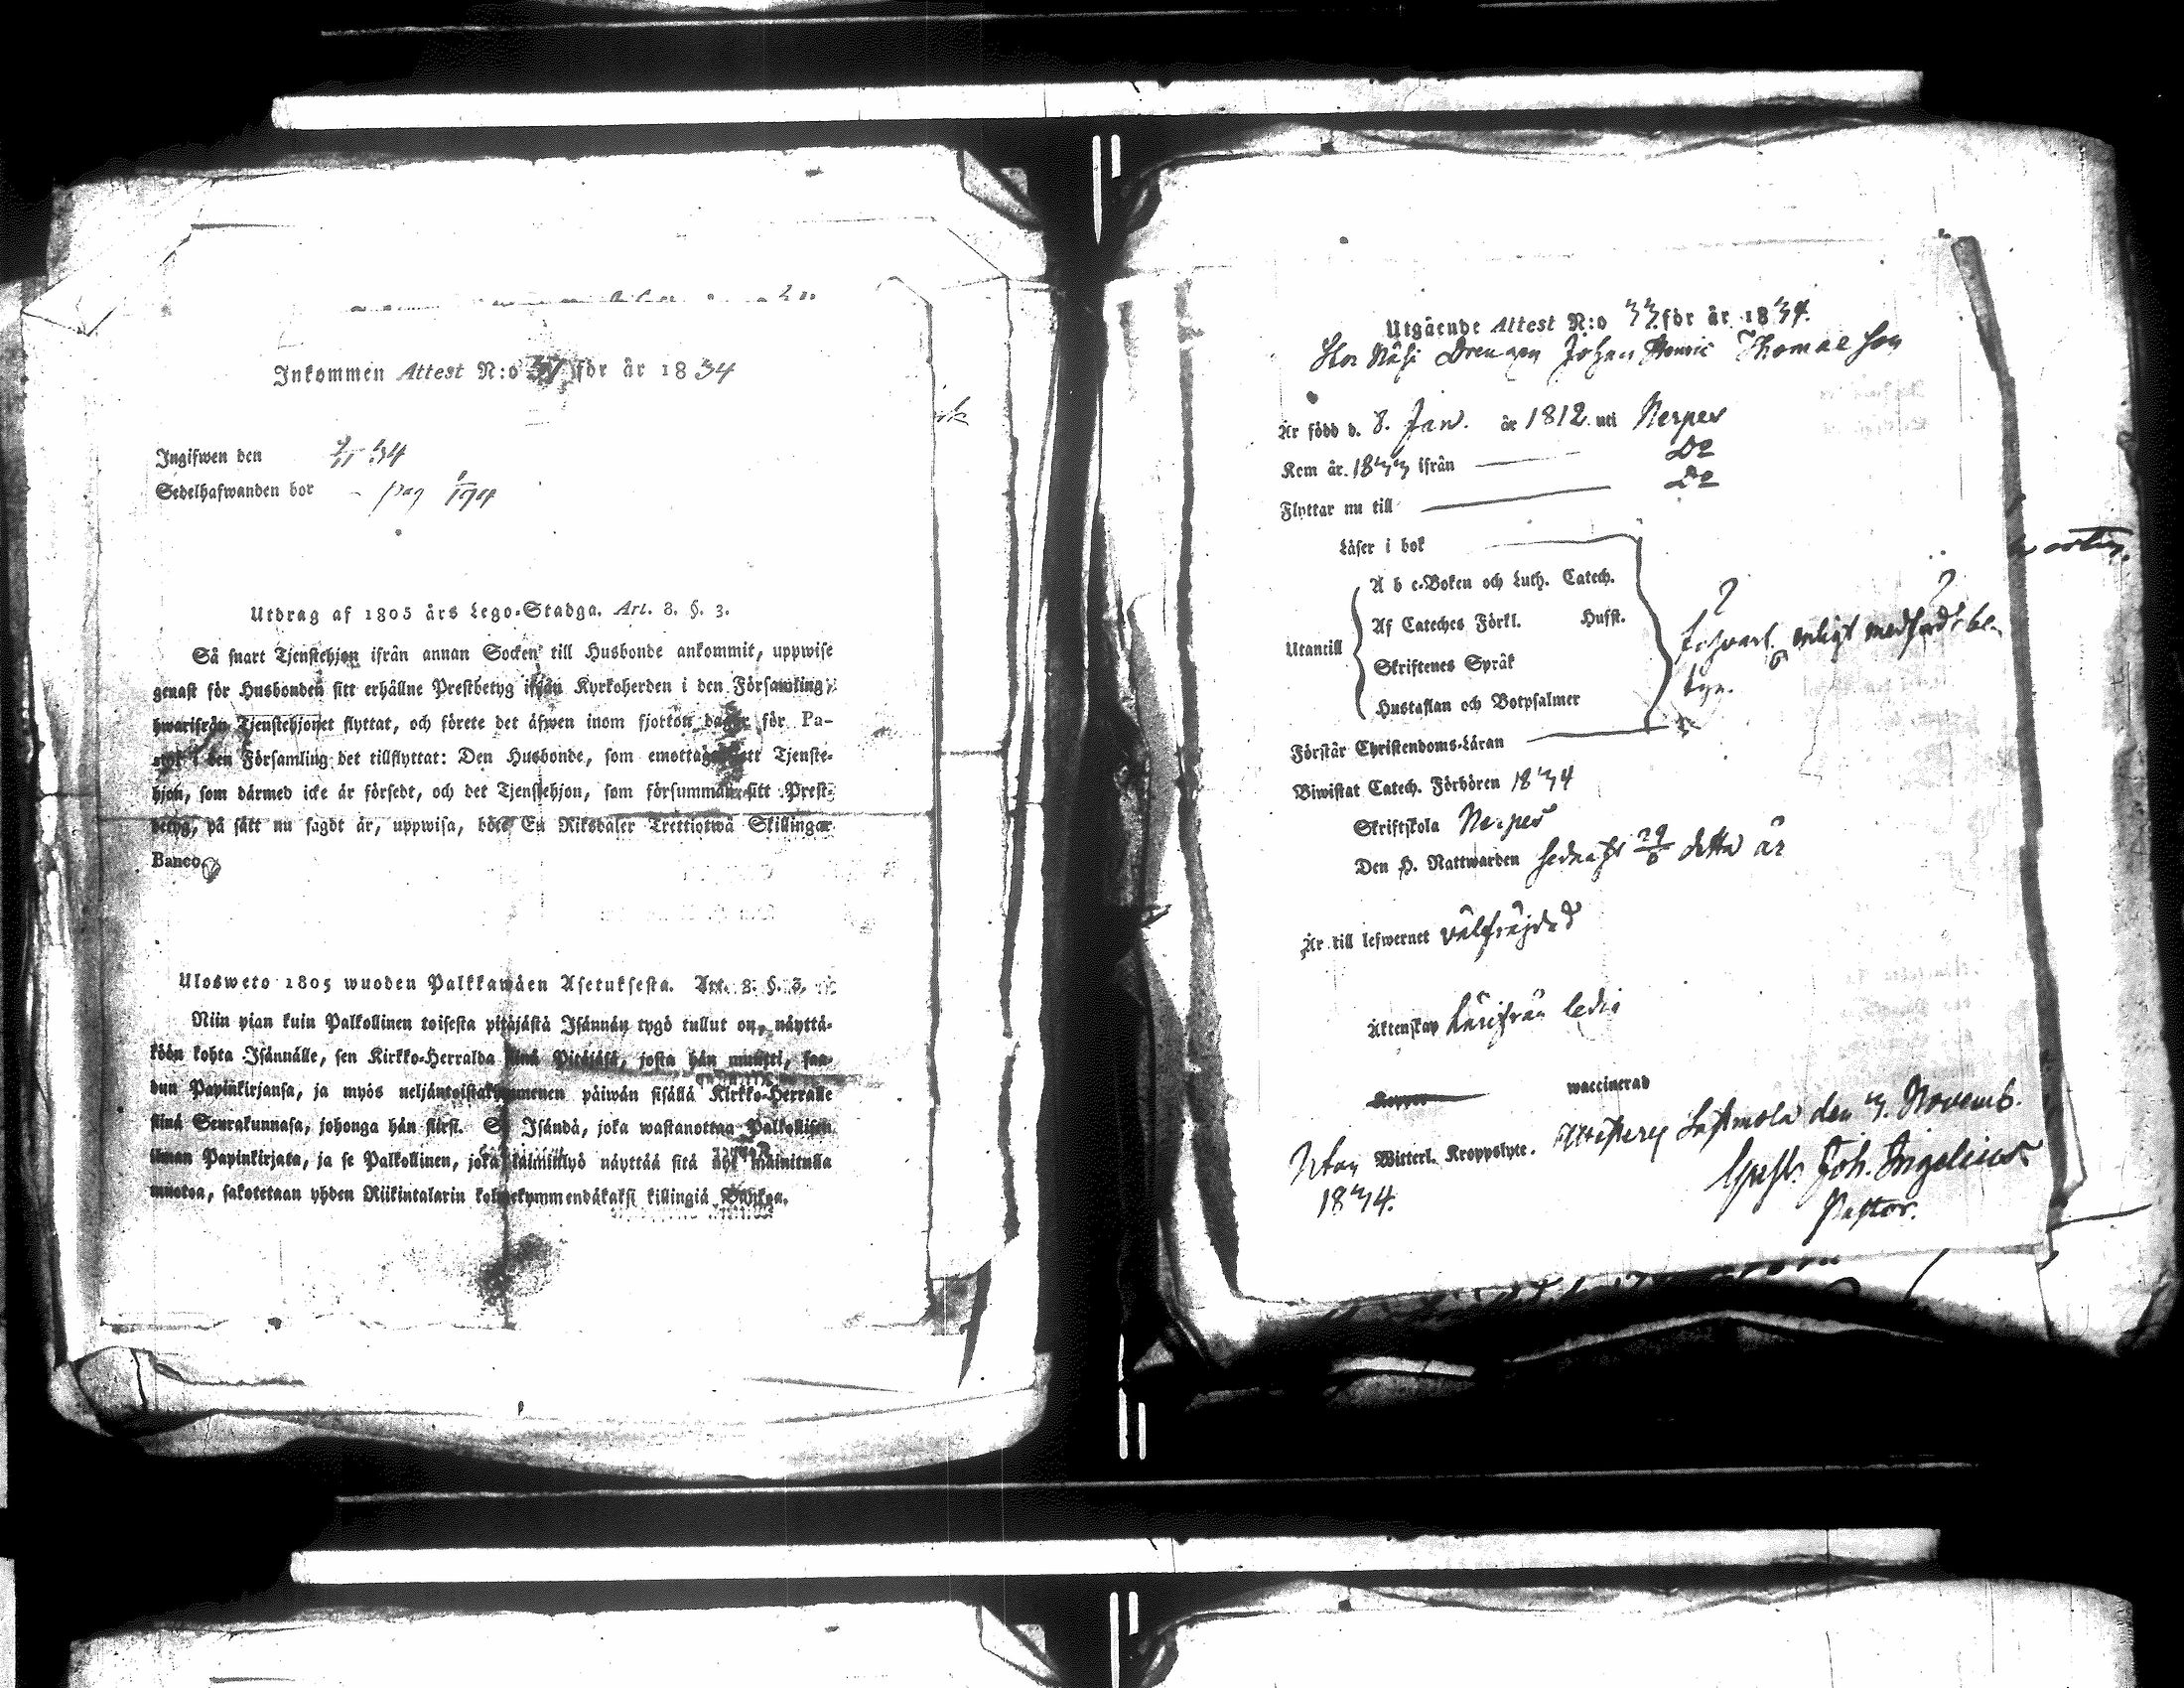 Inkommen Attest N:o 37 för år 1834
Ingifwen den 34
Sedelhafwanden bor pag 194
Utdrag af 1805 års Lego-Stadga. Art. 8. §. 3.
Så snart Tjenstehjon ifrån annan Socken till Husbonde ankommit, uppwise
genast för Husbonden sitt erhållne Prestbetyg ifrån Kyrkoherden i den Församling,
hwarifrån Tjenstehjonet flyttat, och förete det äfwen inom fjorton dagar för Pa-
stor i den Församling det tillflyttat: Den Husbonde, som emottager ett Tjenste-
hjon, som därmed icke är försedt, och det Tjenstehjon, som försummar sitt Prest-
betyg, på sätt nu sagdt är, uppwisa, böte En Riksdaler Trettiotwå Skillingar
Banco.
Ulosweto 1805 wuoden Palkkawäen Asetuksesta. Art. 8. §. 3.
Niin pian kuin Palkollinen toisesta pitäjästä Isännän tygö tullut on, näyttä-
köön kohta Isännälle, sen Kirkko-Herralda siinä Pitäjäsä, josta hän muutti, saa-
dun Papinkirjansa, ja myös neljäntoistakymmenen päiwän sisällä Kirkko-Herralle
siinä Seurakunnasa, johonga hän siirsi. Se Isändä, joka wastanottaa Palkollisen
ilman Papinkirjata, ja se Palkollinen, joka laiminlyö näyttää sitä nyt mainitulla
muotoa, sakotetaan yhden Riikintalarin kolmekymmendäkaksi killingiä Bankoa.
Utgående Attest N:o 33 för år 1834.
Drengen Johan Henric Thomasson
Är född d. 8. Jan. år 1812 uti Nerpes
Kom år 1833 ifrån Do
Flyttar nu till Do
Läser i bok
A b c-Boken och Luth. Catech.
Af Cateches Förkl. Husst.
Utantill
Skriftenes Språk
försvarl. enligt medförd be-
tyg.
Hustaflan och Botpsalmer
Förstår Christendoms-Läran
Biwistat Catech. Förhören 1834
Skriftskola Nerpes
Den H. Nattwarden sednast 29/6 detta år
Är till lefwernet välfräjdad
Äktenskap härifrån ledig
waccinerad
Utan Witterl. Kroppslyte. Attesterar Lappmola den 3. Novemb.
1834.
Joh. Ingelius
Pastor.